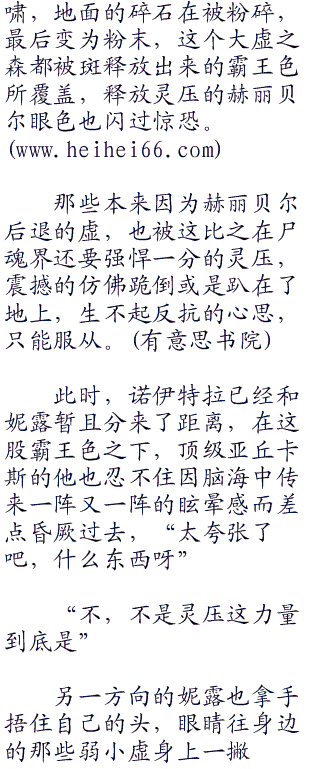 啸，地面的碎石在被粉碎，
最后变为粉末，这个大虚之
森都被斑释放出来的霸王色
所覆盖，释放灵压的赫丽贝
尔眼色也闪过惊恐。
(www.heihei66.com)
那些本来因为赫丽贝尔
后退的虚，也被这比之在尸
魂界还要强悍一分的灵压，
震撼的仿佛跪倒或是趴在了
地上，生不起反抗的心思，
只能服从。(有意思书院)
此时，诺伊特拉已经和
妮露暂且分来了距离，在这
股霸王色之下，顶级亚丘卡
斯的他也忍不住因脑海中传
来一阵又一阵的眩晕感而差
点昏厥过去，“太夸张了
吧，什么东西呀”
“不，不是灵压这力量
到底是”
另一方向的妮露也拿手
捂住自己的头，眼睛往身边
的那些弱小虚身上一撇